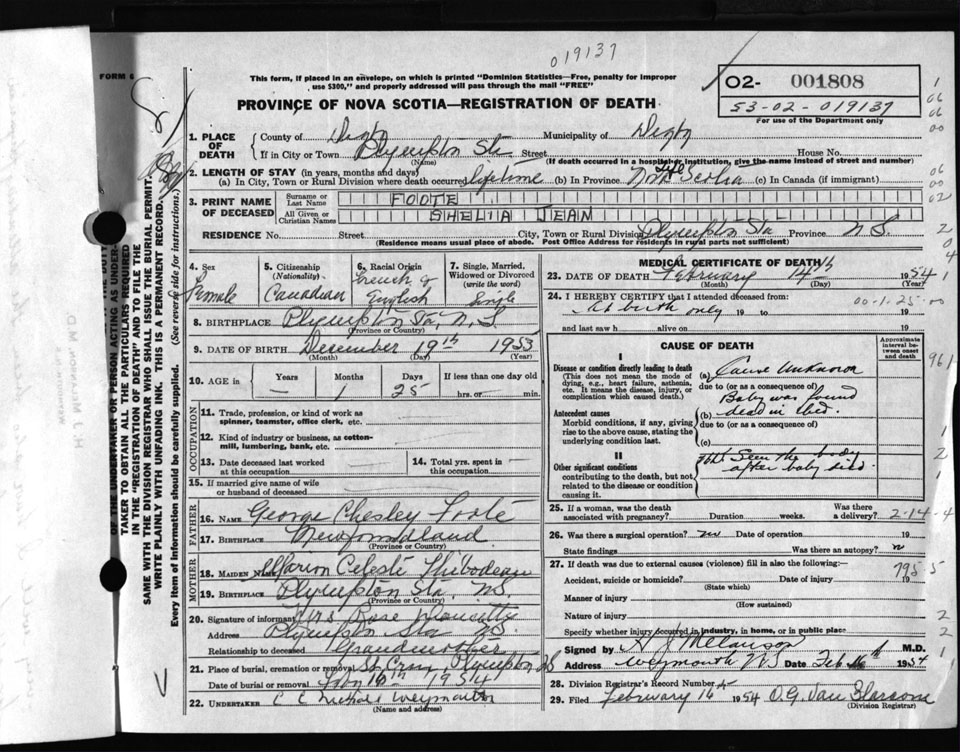 019137
FORM 6
This form, if placed in an envelope, on which is printed "Dominion Statistics—Free, penalty for improper
use $300," and properly addressed will pass through the mail "FREE"
PROVINCE OF NOVA SCOTIA—REGISTRATION OF DEATH
02- 001808
53-02-019137
For use of the Department only
1. PLACE OF DEATH
County of Digby Municipality of Digby
If in City or Town Plympton Sta. Street House No.
(Name) (If death occurred in a hospital or institution, give the name instead of street and number)
2. LENGTH OF STAY (in years, months and days)
(a) In City, Town or Rural Division where death occurred lifetime (b) In Province Nova Scotia (c) In Canada (if immigrant)
3. PRINT NAME OF DECEASED
Surname or Last Name FOOTE
All Given or Christian Names SHELIA JEAN
RESIDENCE No. Street City, Town or Rural Division Plympton Sta Province N.S.
(Residence means usual place of abode. Post Office Address for residents in rural parts not sufficient)
4. Sex Female
5. Citizenship (Nationality) Canadian
6. Racial Origin French & English
7. Single, Married, Widowed or Divorced (write the word) Single
8. BIRTHPLACE Plympton Sta, N.S.
(Province or Country)
9. DATE OF BIRTH December 19th 1953
(Month) (Day) (Year)
10. AGE in — Years 1 Months 25 Days If less than one day old hrs. or min.
OCCUPATION
11. Trade, profession, or kind of work as spinner, teamster, office clerk, etc.
12. Kind of industry or business, as cotton-mill, lumbering, bank, etc.
13. Date deceased last worked at this occupation
14. Total yrs. spent in this occupation
15. If married give name of wife or husband of deceased
FATHER
16. NAME George Chesley Foote
17. BIRTHPLACE Newfoundland
(Province or Country)
MOTHER
18. MAIDEN NAME Marion Celeste Thibodeau
19. BIRTHPLACE Plympton Sta, N.S.
(Province or Country)
20. Signature of informant Mrs Rose
Address Plympton Sta N.S.
Relationship to deceased Grandmother
21. Place of burial, cremation or removal St Croix, Plympton, NS
Date of burial or removal 16th 1954
22. UNDERTAKER Weymouth
(Name and address)
MEDICAL CERTIFICATE OF DEATH
23. DATE OF DEATH February 14th 1954
(Month) (Day) (Year)
24. I HEREBY CERTIFY that I attended deceased from: 00-1-25-00
at birth only 19 to 19
and last saw h alive on 19
CAUSE OF DEATH
Approximate interval between onset and death
I
Disease or condition directly leading to death
(This does not mean the mode of dying, e.g., heart failure, asthenia, etc. It means the disease, injury, or complication which caused death.)
(a) Cause unknown
due to (or as a consequence of)
Baby was found
(b) dead in bed.
Antecedent causes
Morbid conditions, if any, giving rise to the above cause, stating the underlying condition last.
due to (or as a consequence of)
(c)
II
Other significant conditions
contributing to the death, but not related to the disease or condition causing it.
Seen the body
after baby died.
961
25. If a woman, was the death associated with pregnancy? Duration weeks. Was there a delivery? 2-14-4
26. Was there a surgical operation? no Date of operation 19
State findings Was there an autopsy? n
27. If death was due to external causes (violence) fill in also the following:—
7955
Accident, suicide or homicide? Date of injury 19
(State which)
Manner of injury
(How sustained)
Nature of injury
Specify whether injury occurred in industry, in home, or in public place
Signed by H J Melanson M.D.
Address Weymouth NS Date Feb 1954
28. Division Registrar's Record Number
29. Filed February 16 1954 O.G. Van Blarcom
(Division Registrar)
OF THE UNDERTAKER OR PERSON ACTING AS UNDER-
TAKER TO OBTAIN ALL THE PARTICULARS REQUIRED
IN THE "REGISTRATION OF DEATH" AND TO FILE THE
SAME WITH THE DIVISION REGISTRAR WHO SHALL ISSUE THE BURIAL PERMIT.
WRITE PLAINLY WITH UNFADING INK. THIS IS A PERMANENT RECORD.
Every item of Information should be carefully supplied. (See reverse side for instructions.)
H. J. MELANSON, M.D.